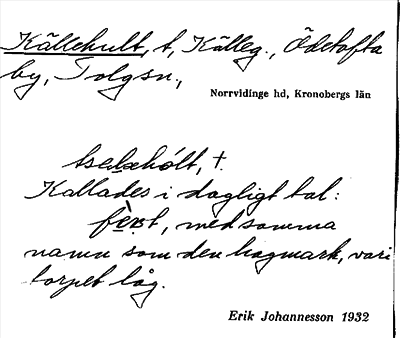 Källehult, t, Källeg., Ödetofta
by, Tolgsn.,
Norrvidinge hd, Kronobergs län
t.
Kallades i dagligt tal:
med samma
namn som den hagmark, vari
torpet låg.
Erik Johannesson 1932